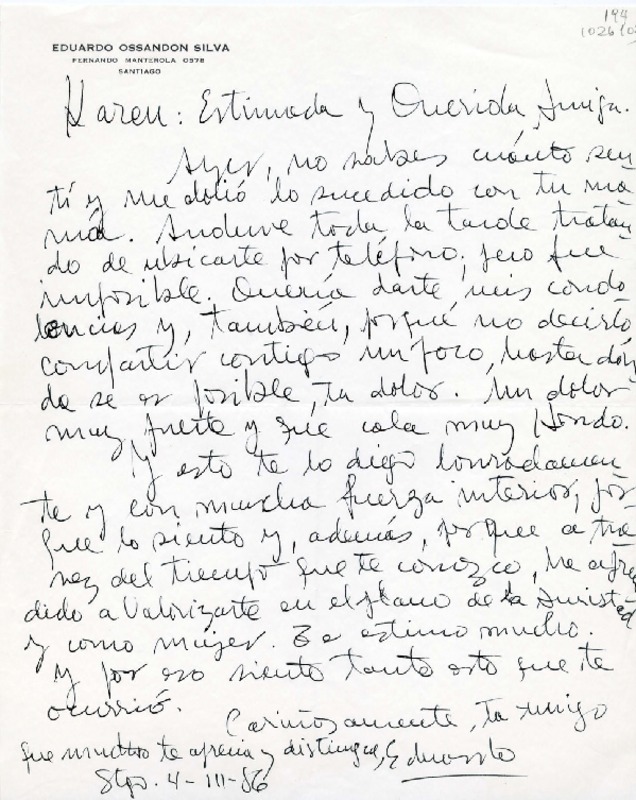 194
EDUARDO OSSANDON SILVA
FERNANDO MANTEROLA 0578
SANTIAGO
Karen: Estimada y Querida Amiga.
Ayer, no sabes cuánto sen
tí y me dolió lo sucedido con tu ma
má. Anduve toda la tarde tratan
do de ubicarte por teléfono, pero fue
imposible. Quería darte mis condo
lencias y, también, porqué no decirlo
compartir contigo un poco, hasta dón
de se es posible, tu dolor. Un dolor
muy fuerte y que cala muy Hondo.
Y esto te lo digo honradamen
te y con mucha fuerza interior, por
que lo siento y, además, porque a tra
vez del tiempo que te conozco, he apren
dido a valorizarte en el plano de la Amistad
y como mujer. Te estimo mucho.
Y por eso siento tanto esto que te
ocurrió.
Cariñosamente, tu amigo
que mucho te aprecia y distingue, Eduardo
Stgo. 4-III-86